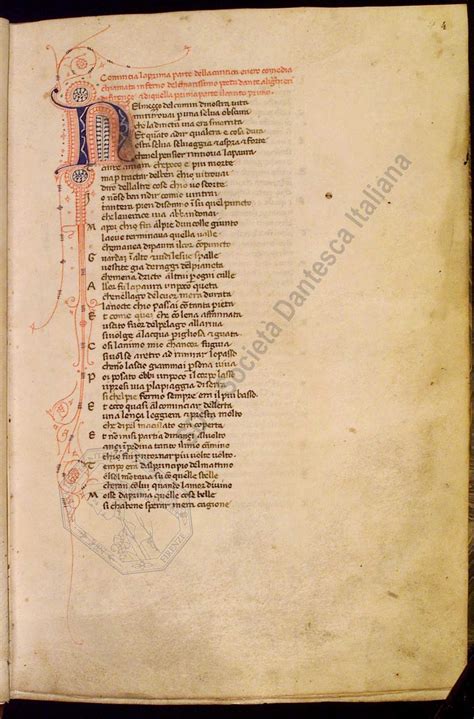 4
Comincia la prima parte della cantica overo comedia
chiamata inferno del chiarissimo poeta dante alighieri
di firençe et di quella prima parte il canto primo
Nel meço del camin di nostra vita
mi ritrovai p una selva obscura
che la diritta via era smarrita
Et quāto a dir qual era e cosa dura
esta selva selvaggia et aspra et forte
che nel pensier rinnova la paura
Tant e amara che poco e piu morte
ma p tractar del ben chio vi trovai
diro dellaltre cose chio vo scorte
I o non so ben ridir comio vintrai
tantera pien di sonno i su quel puncto
che la verace via abbandonai
M a poi chio fui al pie dun colle giunto
la ove terminava quella valle
che mavea di paura il cor cōpuncto
G uardai ī alto et vidi le sue spalle
vestite gia de raggi del pianeta
che mena dricto altrui p ogni calle
A llor fu la paura un poco queta
che nellago del cuor mera durata
la nocte chio passai cō tanta pieta
E t come quei che cō lena affannata
uscito fuor del pelago alla riva
si volge allacqua pigliosa et guata
C osi lanimo mio chancor fuggiva
si volse a retro ad rimirar lo passo
che nō lascio giammai psona viva
P oi posato ebbi un poco il corpo lasso
ripresi via p la piaggia diserta
si chel pie fermo sempre era il piu basso
E t ecco quasi al cominciar dellerta
una lonça leggiera et presta molto
che di pel maculato era coperta
E t nō mi si partia dinançi al volto
ançi īpedia tanto il mio cāmino
chio fui p ritornar piu volte volto
T emp era dal principio del mattino
el sol mōtava su cō quelle stelle
cheran cō lui quando lamor divino
M osse da prima quelle cose belle
si cha bene sperar mera cagione
Società Dantesca Italiana